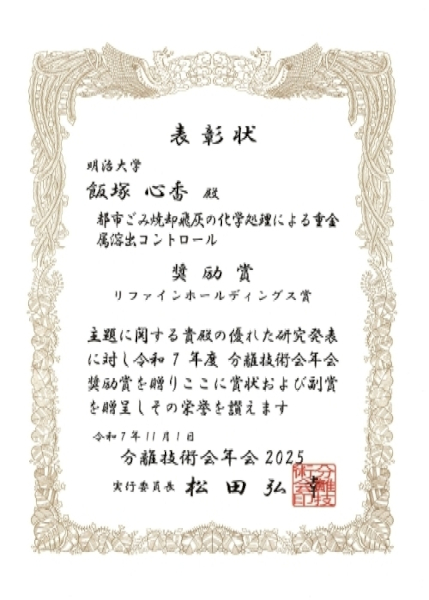 表彰状
明治大学
飯塚 心香 殿
都市ごみ焼却飛灰の化学処理による重金
属溶出コントロール
奨励賞
リファインホールディングス賞
主題に関する貴殿の優れた研究発表
に対し令和7年度 分離技術会年会
奨励賞を贈りここに賞状および副賞
を贈呈しその栄誉を讃えます
令和7年11月1日
分離技術会年会2025
実行委員長 松田弘幸
分離技術会印